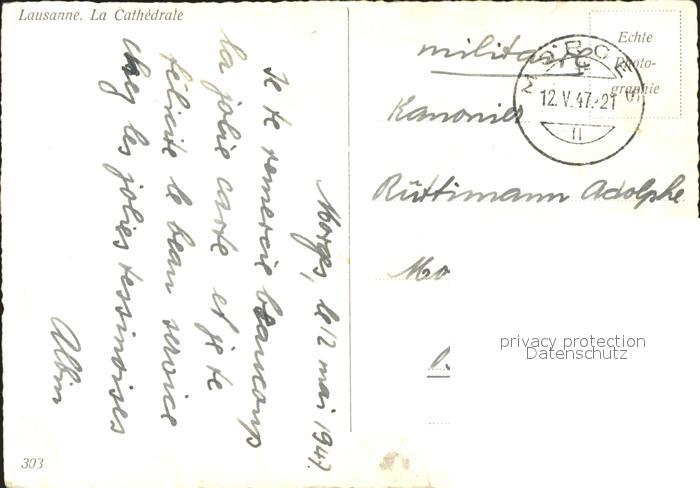 Lausanne. La Cathédrale
Morges, le 12 mai 1947.
Je te remercie beaucoup
la jolie carte et je te
félicite le beau service
chez les jolies tessinoises
Albin
303
militaire
Echte
Photo-
graphie
MORGES
12.V.47.-21
Kanonier
Rüttimann Adolphe
Mo
privacy protection
Datenschutz